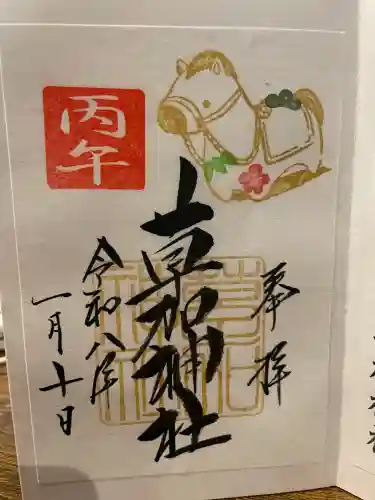 丙午
奉拝
草加神社
令和八年
一月十日